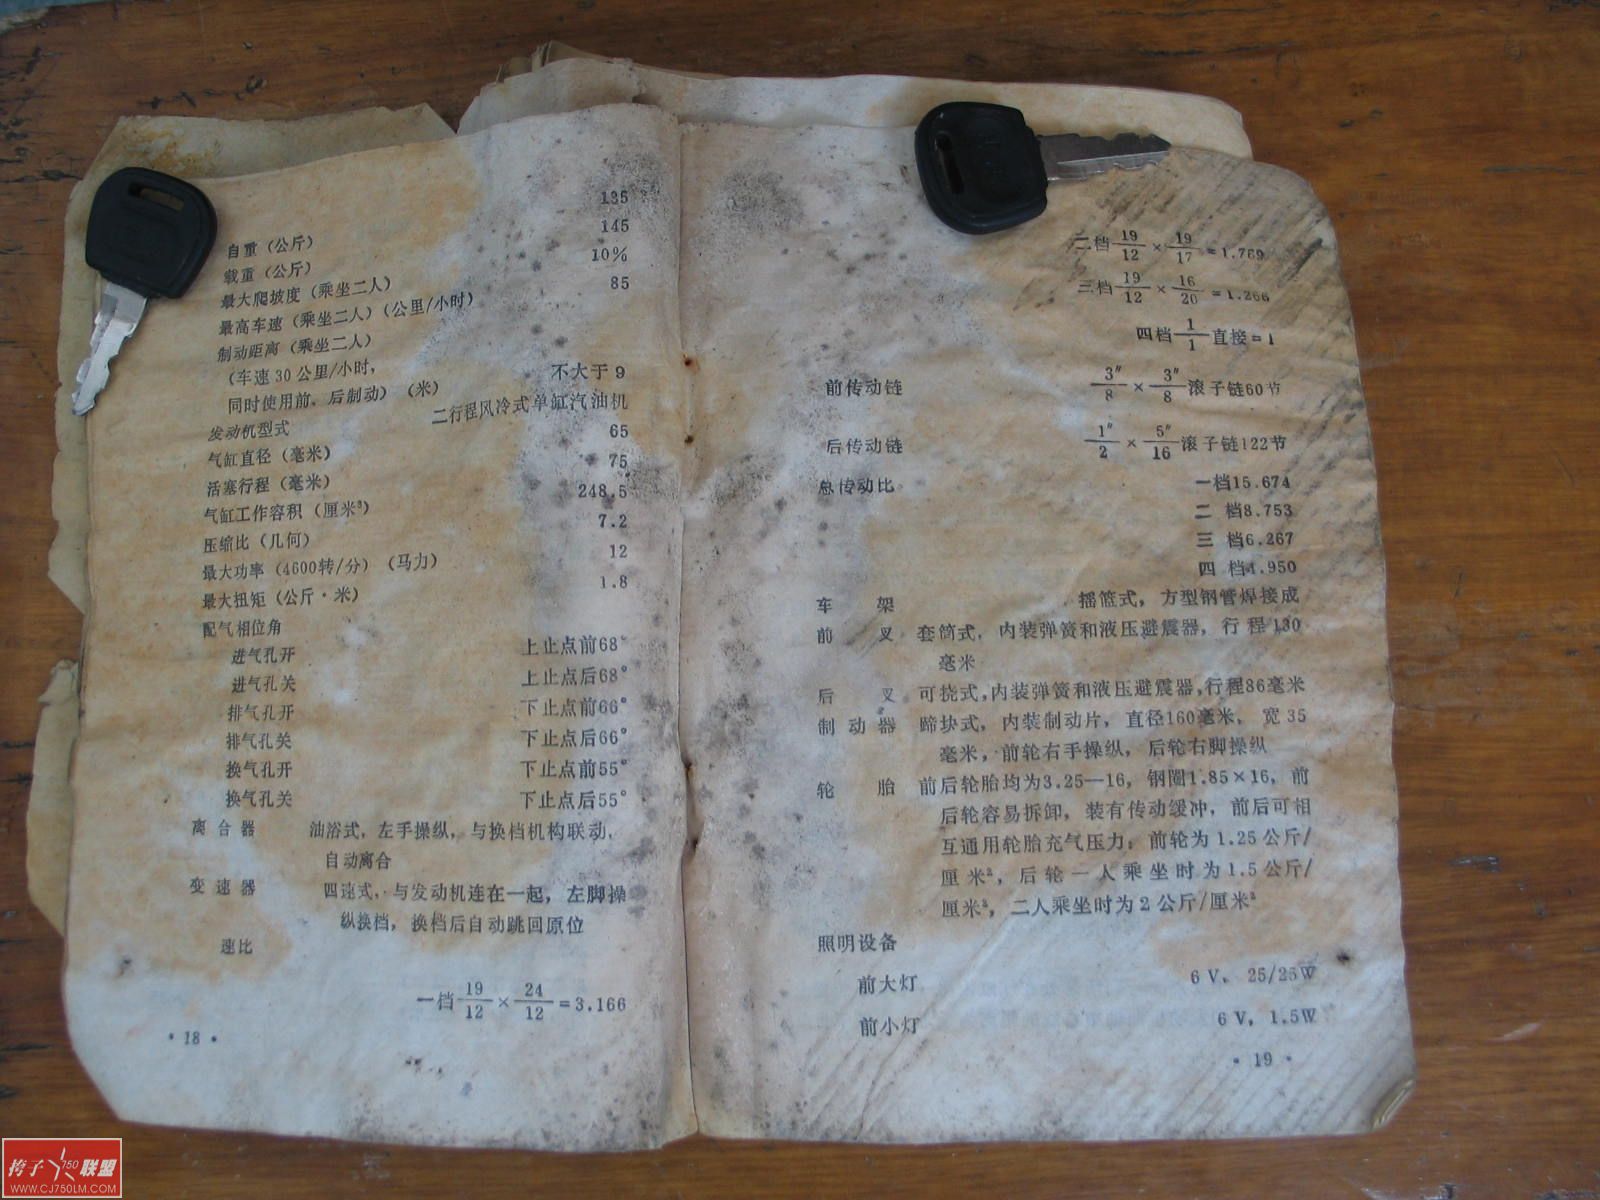 自重（公斤） 135
载重（公斤） 145
最大爬坡度（乘坐二人） 10%
最高车速（乘坐二人）（公里/小时） 85
制动距离（乘坐二人）
（车速30公里/小时，
同时使用前、后制动）（米） 不大于9
发动机型式 二行程风冷式单缸汽油机
气缸直径（毫米） 65
活塞行程（毫米） 75
气缸工作容积（厘米³） 248.5
压缩比（几何） 7.2
最大功率（4600转/分）（马力） 12
最大扭矩（公斤·米） 1.8
配气相位角
进气孔开 上止点前68°
进气孔关 上止点后68°
排气孔开 下止点前66°
排气孔关 下止点后66°
换气孔开 下止点前55°
换气孔关 下止点后55°
离合器 油浴式，左手操纵，与换档机构联动，
自动离合
变速器 四速式，与发动机连在一起，左脚操
纵换档，换档后自动跳回原位
速比
一档19/12×24/12=3.166
·18·
二档19/12×19/17=1.769
三档19/12×16/20=1.266
四档1/1直接=1
前传动链 3″/8×3″/8滚子链60节
后传动链 1″/2×5″/16滚子链122节
总传动比 一档15.674
二 档8.753
三 档6.267
四 档4.950
车架 摇篮式，方型钢管焊接成
前叉 套筒式，内装弹簧和液压避震器，行程130
毫米
后叉 可挠式，内装弹簧和液压避震器，行程86毫米
制动器 蹄块式，内装制动片，直径160毫米，宽35
毫米，前轮右手操纵，后轮右脚操纵
轮胎 前后轮胎均为3.25—16，钢圈1.85×16，前
后轮容易拆卸，装有传动缓冲，前后可相
互通用轮胎充气压力：前轮为1.25公斤/
厘米²，后轮一人乘坐时为1.5公斤/
厘米²，二人乘坐时为2公斤/厘米²
照明设备
前大灯 6V、25/25W
前小灯 6V，1.5W
·19·
挎子750联盟
WWW.CJ750LM.COM